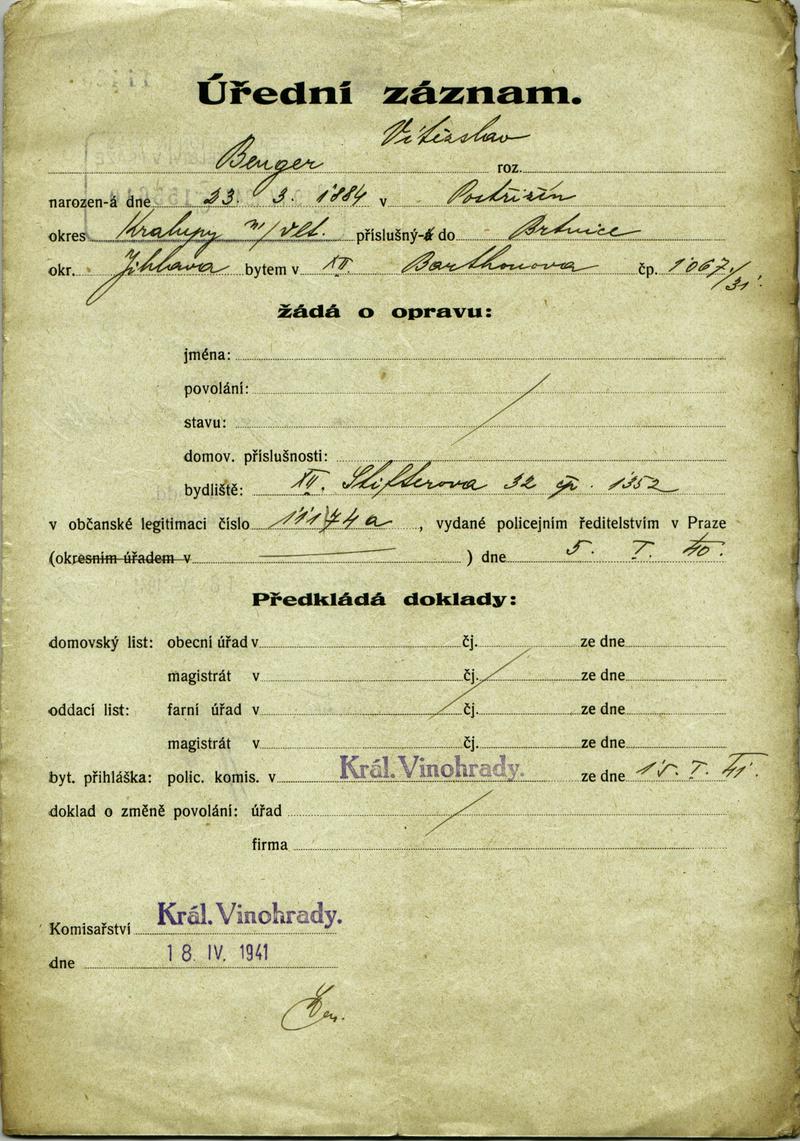 Úřední záznam.
Benger Vítězslav roz.
narozen-á dne 23. 3. 1884 v Postřižín
okres Kralupy n/Vlt. příslušný-á do Brtnice
okr. Jihlava bytem v XII. Barthonova čp. 1067/31.
žádá o opravu:
jména:
povolání:
stavu:
domov. příslušnosti:
bydliště: XII. Stifterova 32 čp. 1352
v občanské legitimaci číslo 11174a, vydané policejním ředitelstvím v Praze
(okresním úřadem v ) dne 5. I. 40.
Předkládá doklady:
domovský list: obecní úřad v čj. ze dne
magistrát v čj. ze dne
oddací list: farní úřad v čj. ze dne
magistrát v čj. ze dne
byt. přihláška: polic. komis. v Král. Vinohrady. ze dne 15. I. 41.
doklad o změně povolání: úřad
firma
Komisařství Král. Vinohrady.
dne 18. IV. 1941